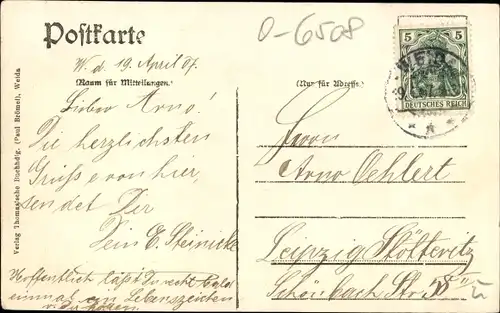 Postkarte
O-6508
5 5
WEIDA
DEUTSCHES REICH
W. d. 19. April 07.
(Raum für Mitteilungen.)
(Nur für Adresse.)
Lieber Arno!
Die herzlichsten
Grüße von hier
sendet Dir
Dein E. Steinicke
Hoffentlich läßt Du recht bald
einmal ein Lebenszeichen
von hören.
Herrn
Arno Oehlert
Leipzig Stötteritz
Schönbach Str.
Verlag Thomas'sche Buchhdlg. (Paul Brömel), Weida